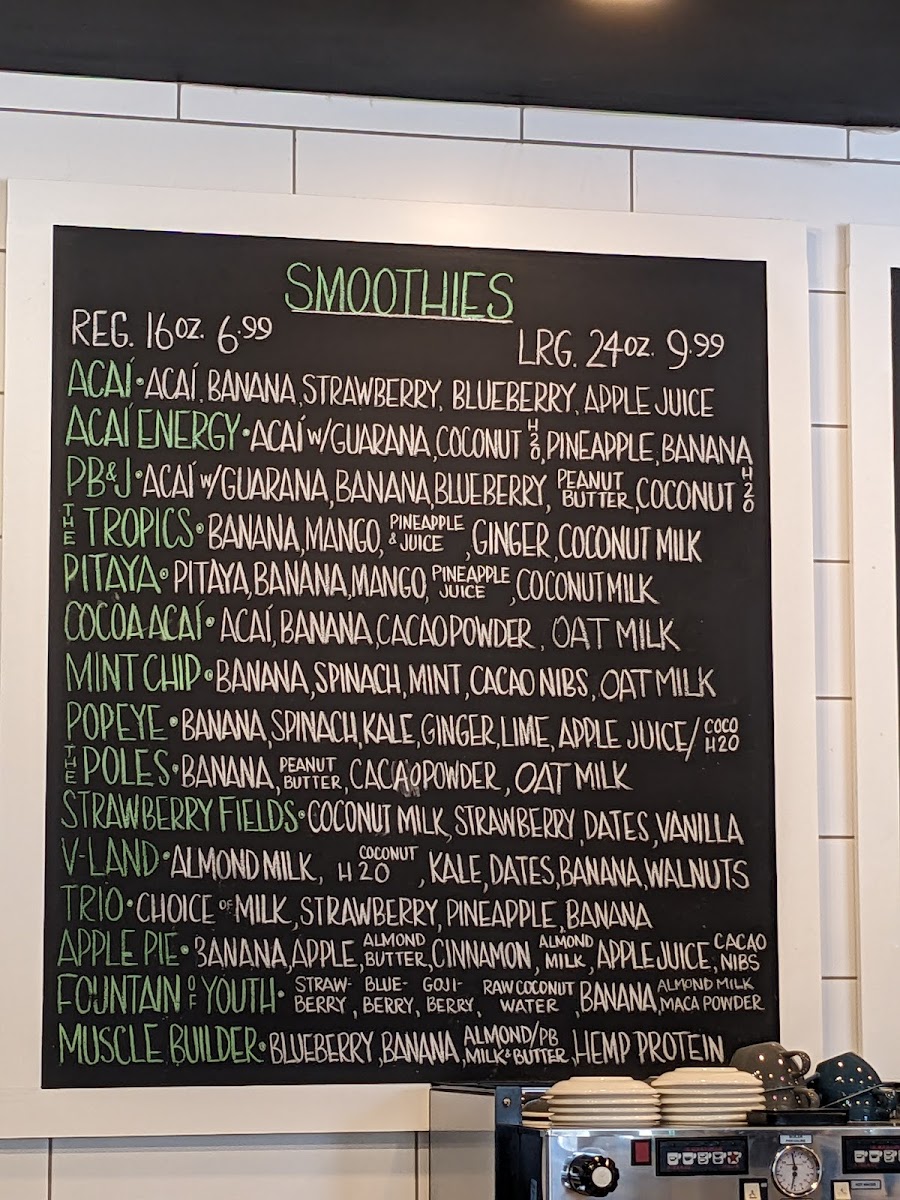 SMOOTHIES
REG. 16oz. 6.99
LRG. 24oz. 9.99
ACAÍ • ACAÍ, BANANA, STRAWBERRY, BLUEBERRY, APPLE JUICE
ACAÍ ENERGY • ACAÍ W/GUARANA, COCONUT H2O, PINEAPPLE, BANANA
PB&J • ACAÍ W/GUARANA, BANANA, BLUEBERRY, PEANUT BUTTER, COCONUT H2O
THE TROPICS • BANANA, MANGO, PINEAPPLE & JUICE, GINGER, COCONUT MILK
PITAYA • PITAYA, BANANA, MANGO, PINEAPPLE JUICE, COCONUT MILK
COCOA ACAÍ • ACAÍ, BANANA, CACAO POWDER, OAT MILK
MINT CHIP • BANANA, SPINACH, MINT, CACAO NIBS, OAT MILK
POPEYE • BANANA, SPINACH, KALE, GINGER, LIME, APPLE JUICE/ COCO H2O
THE POLES • BANANA, PEANUT BUTTER, CACAO POWDER, OAT MILK
STRAWBERRY FIELDS • COCONUT MILK, STRAWBERRY, DATES, VANILLA
V-LAND • ALMOND MILK, COCONUT H2O, KALE, DATES, BANANA, WALNUTS
TRIO • CHOICE OF MILK, STRAWBERRY, PINEAPPLE, BANANA
APPLE PIE • BANANA, APPLE, ALMOND BUTTER, CINNAMON, ALMOND MILK, APPLE JUICE, CACAO NIBS
FOUNTAIN OF YOUTH • STRAW-BERRY, BLUE-BERRY, GOJI-BERRY, RAW COCONUT WATER, BANANA, ALMOND MILK MACA POWDER
MUSCLE BUILDER • BLUEBERRY, BANANA, ALMOND/PB MILK & BUTTER, HEMP PROTEIN